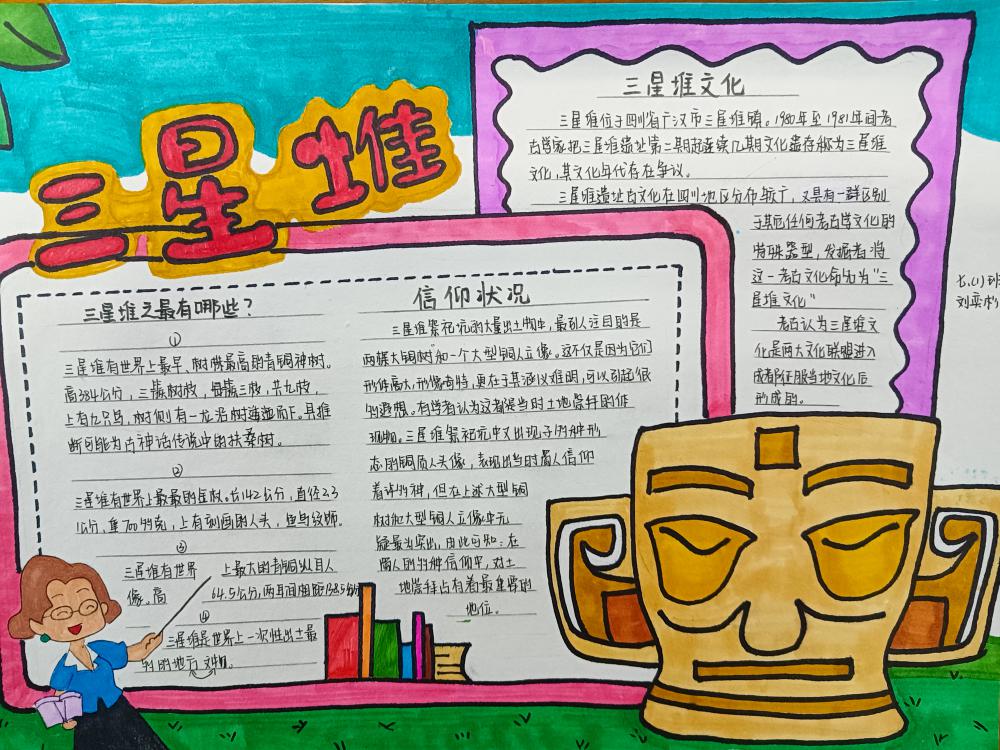 三星堆
三星堆文化
三星堆位于四川省广汉市三星堆镇。1980年至1981年间考
古学家把三星堆遗址第二期起连续几期文化遗存称为三星堆
文化,其文化年代存在争议。
三星堆遗址古文化在四川地区分布较广,又具有一群区别
于其他任何考古学文化的
特殊器型,发掘者将
这一考古文化命名为“三
星堆文化”
考古认为三星堆文
化是两大文化联盟进入
成都征服当地文化后
形成的。
七.(1)班
刘奕杉
三星堆之最有哪些?
①
三星堆有世界上最早、树株最高的青铜神树。
高384公分,三簇树枝,每簇三枝,共九枝,
上有九只鸟,树侧有一龙沿树逶迤而下。且推
断可能为古神话传说中的扶桑树。
②
三星堆有世界上最最的金杖。长142公分,直径2.3
公分,重700多克,上有刻画的人头,鱼鸟纹饰。
③
三星堆有世界上最大的青铜纵目人
像。高64.5公分,两耳间相距138.5
④
三星堆是世界上一次性出土最
的地方文物。
信仰状况
三星堆祭祀坑的大量出土物中,最引人注目的是
两棵大铜树”和一个大型铜人立像。这不仅是因为它们
形体高大,形像奇特,更在于其涵义难明,可以引起很
多的遐想。有学者认为这者是当时土地崇拜的体
现物。三星堆祭祀坑中又出现了多种形
态的铜质人头像,表现出当时蜀人信仰
着许多神,但在上述大型铜
树和大型铜人立像中无
疑最为突出,由此可知:在
蜀人的多种信仰中,对土
地崇拜占有着最重要的
地位。